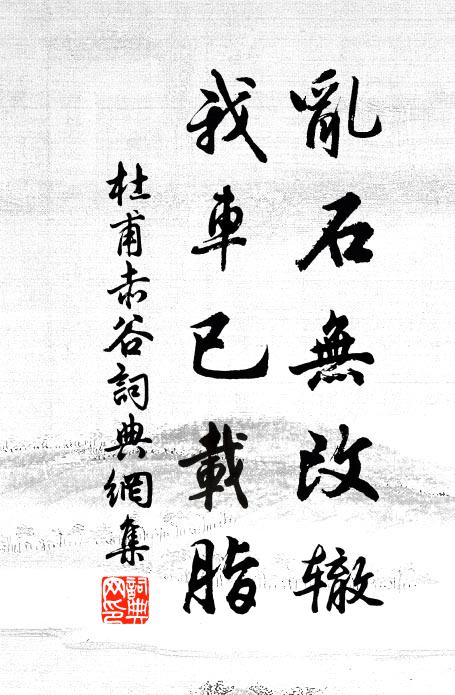 亂石無改辙
我車已載脂
杜甫赤谷詞典網集
詞典
网印